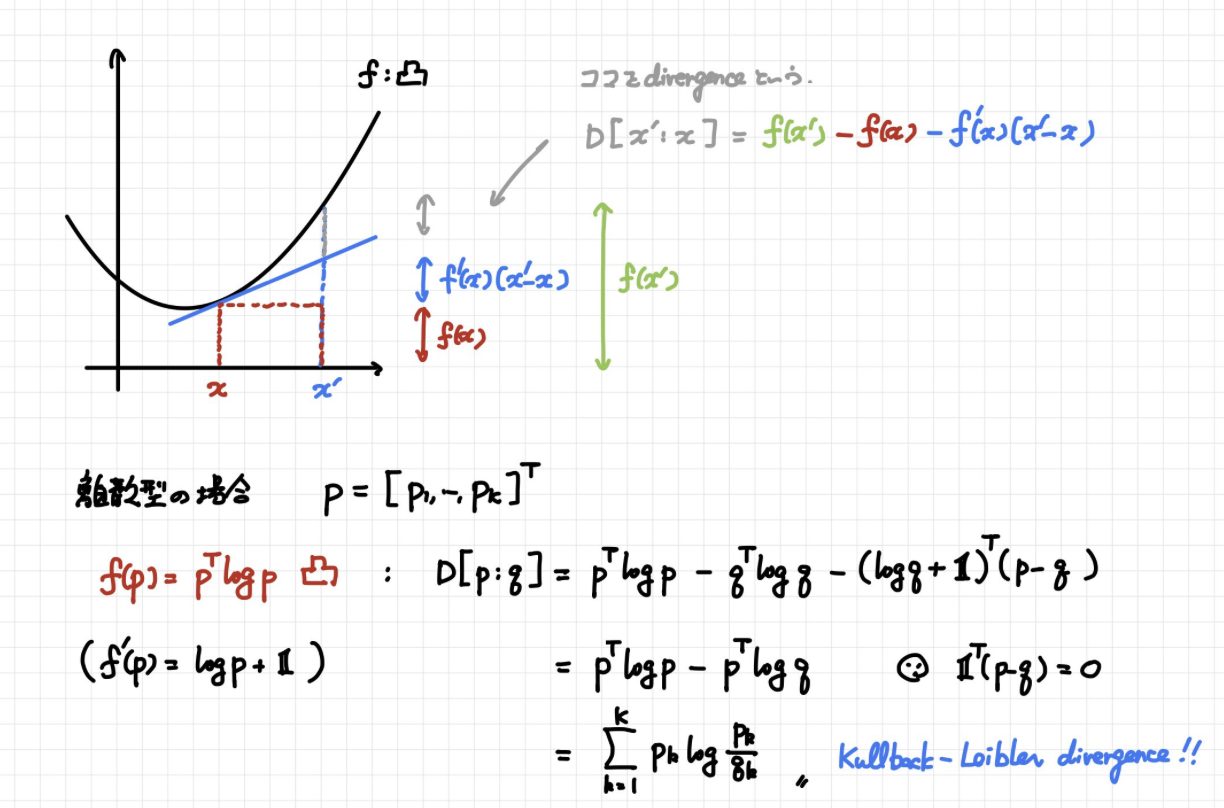 f:凸
ココを divergence という.
D[x':x] = f(x') - f(x) - f'(x)(x'-x)
f'(x)(x'-x)
f(x')
f(x)
x
x'
離散型の場合 p = [p₁, ‐, pₖ]ᵀ
f(p) = pᵀlog p 凸 : D[p:q] = pᵀlog p - qᵀlog q - (log q + 𝟙)ᵀ(p-q)
(f'(p) = log p + 𝟙) = pᵀlog p - pᵀlog q ☺ 𝟙ᵀ(p-q) = 0
= ∑_{k=1}^{K} pₖ log pₖ/qₖ 〃 Kullback-Loibler divergence!!